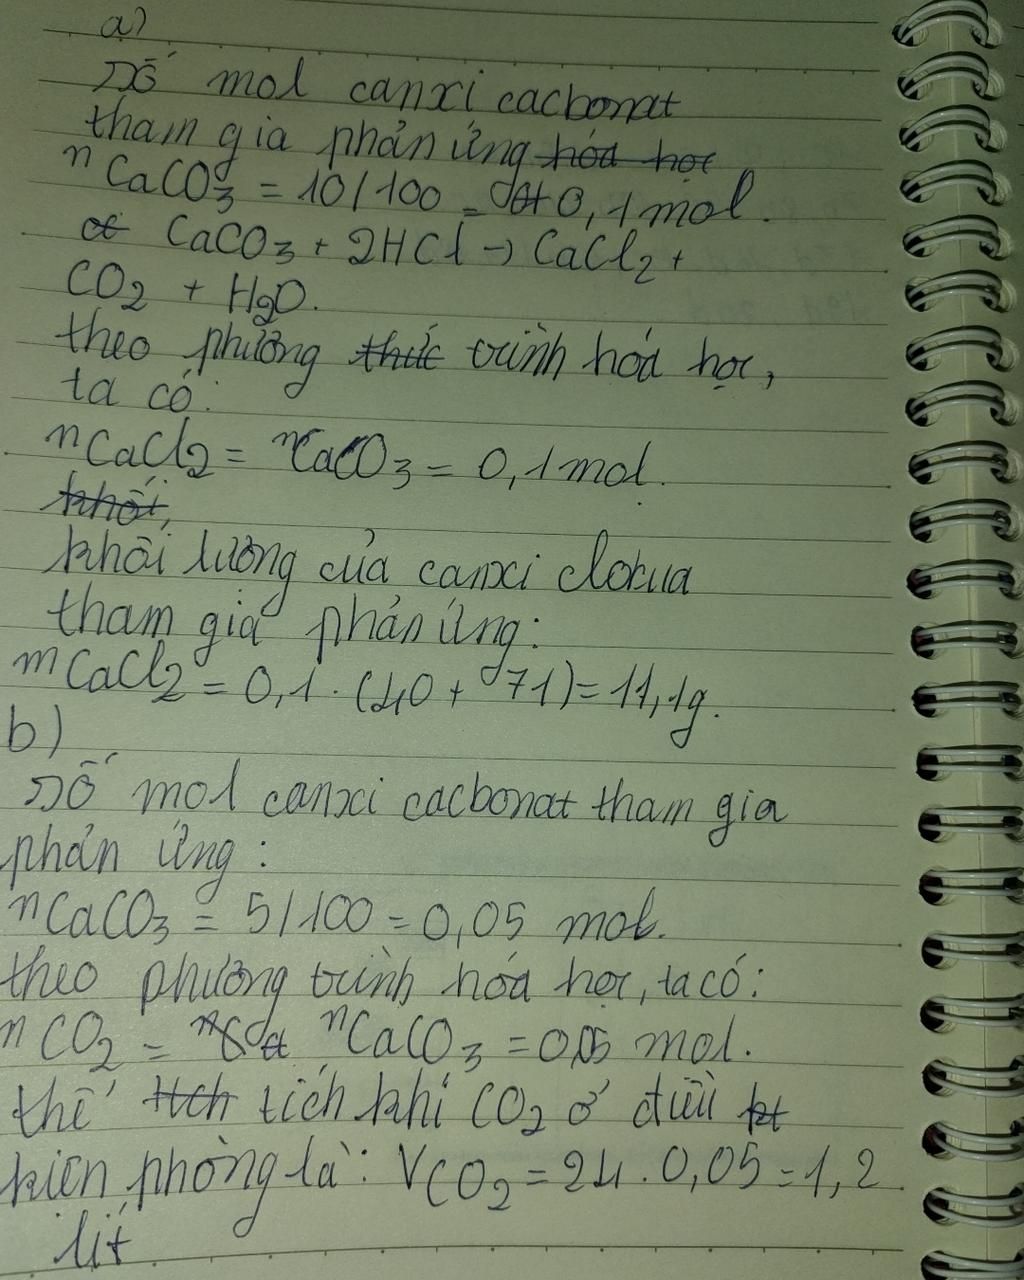 a)
Số mol canxi cacbonat
tham gia phản ứng hóa học
nCaCO3 = 10/100 = 0,1mol.
CaCO3 + 2HCl → CaCl2 +
CO2 + H2O.
theo phương thức trình hóa học,
ta có:
nCaCl2 = nCaCO3 = 0,1mol.
khối,
khối lượng của canxi clorua
tham gia phản ứng:
mCaCl2 = 0,1.(40 + 71) = 11,1g.
b)
Số mol canxi cacbonat tham gia
phản ứng:
nCaCO3 = 5/100 = 0,05 mol.
theo phương trình hóa học, ta có:
nCO2 = nCaCO3 = 0,05 mol.
thể tích khí CO2 ở điều
kiện phòng là: VCO2 = 24.0,05 = 1,2
lít